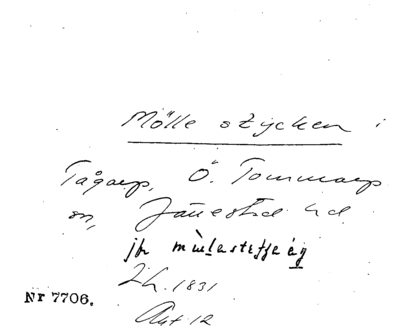 Mölle stycken i
Tågarp, Ö. Tommarp
sn, Järrestad hd
jfr
Lh. 1831
Nr 7706.
Akt 12